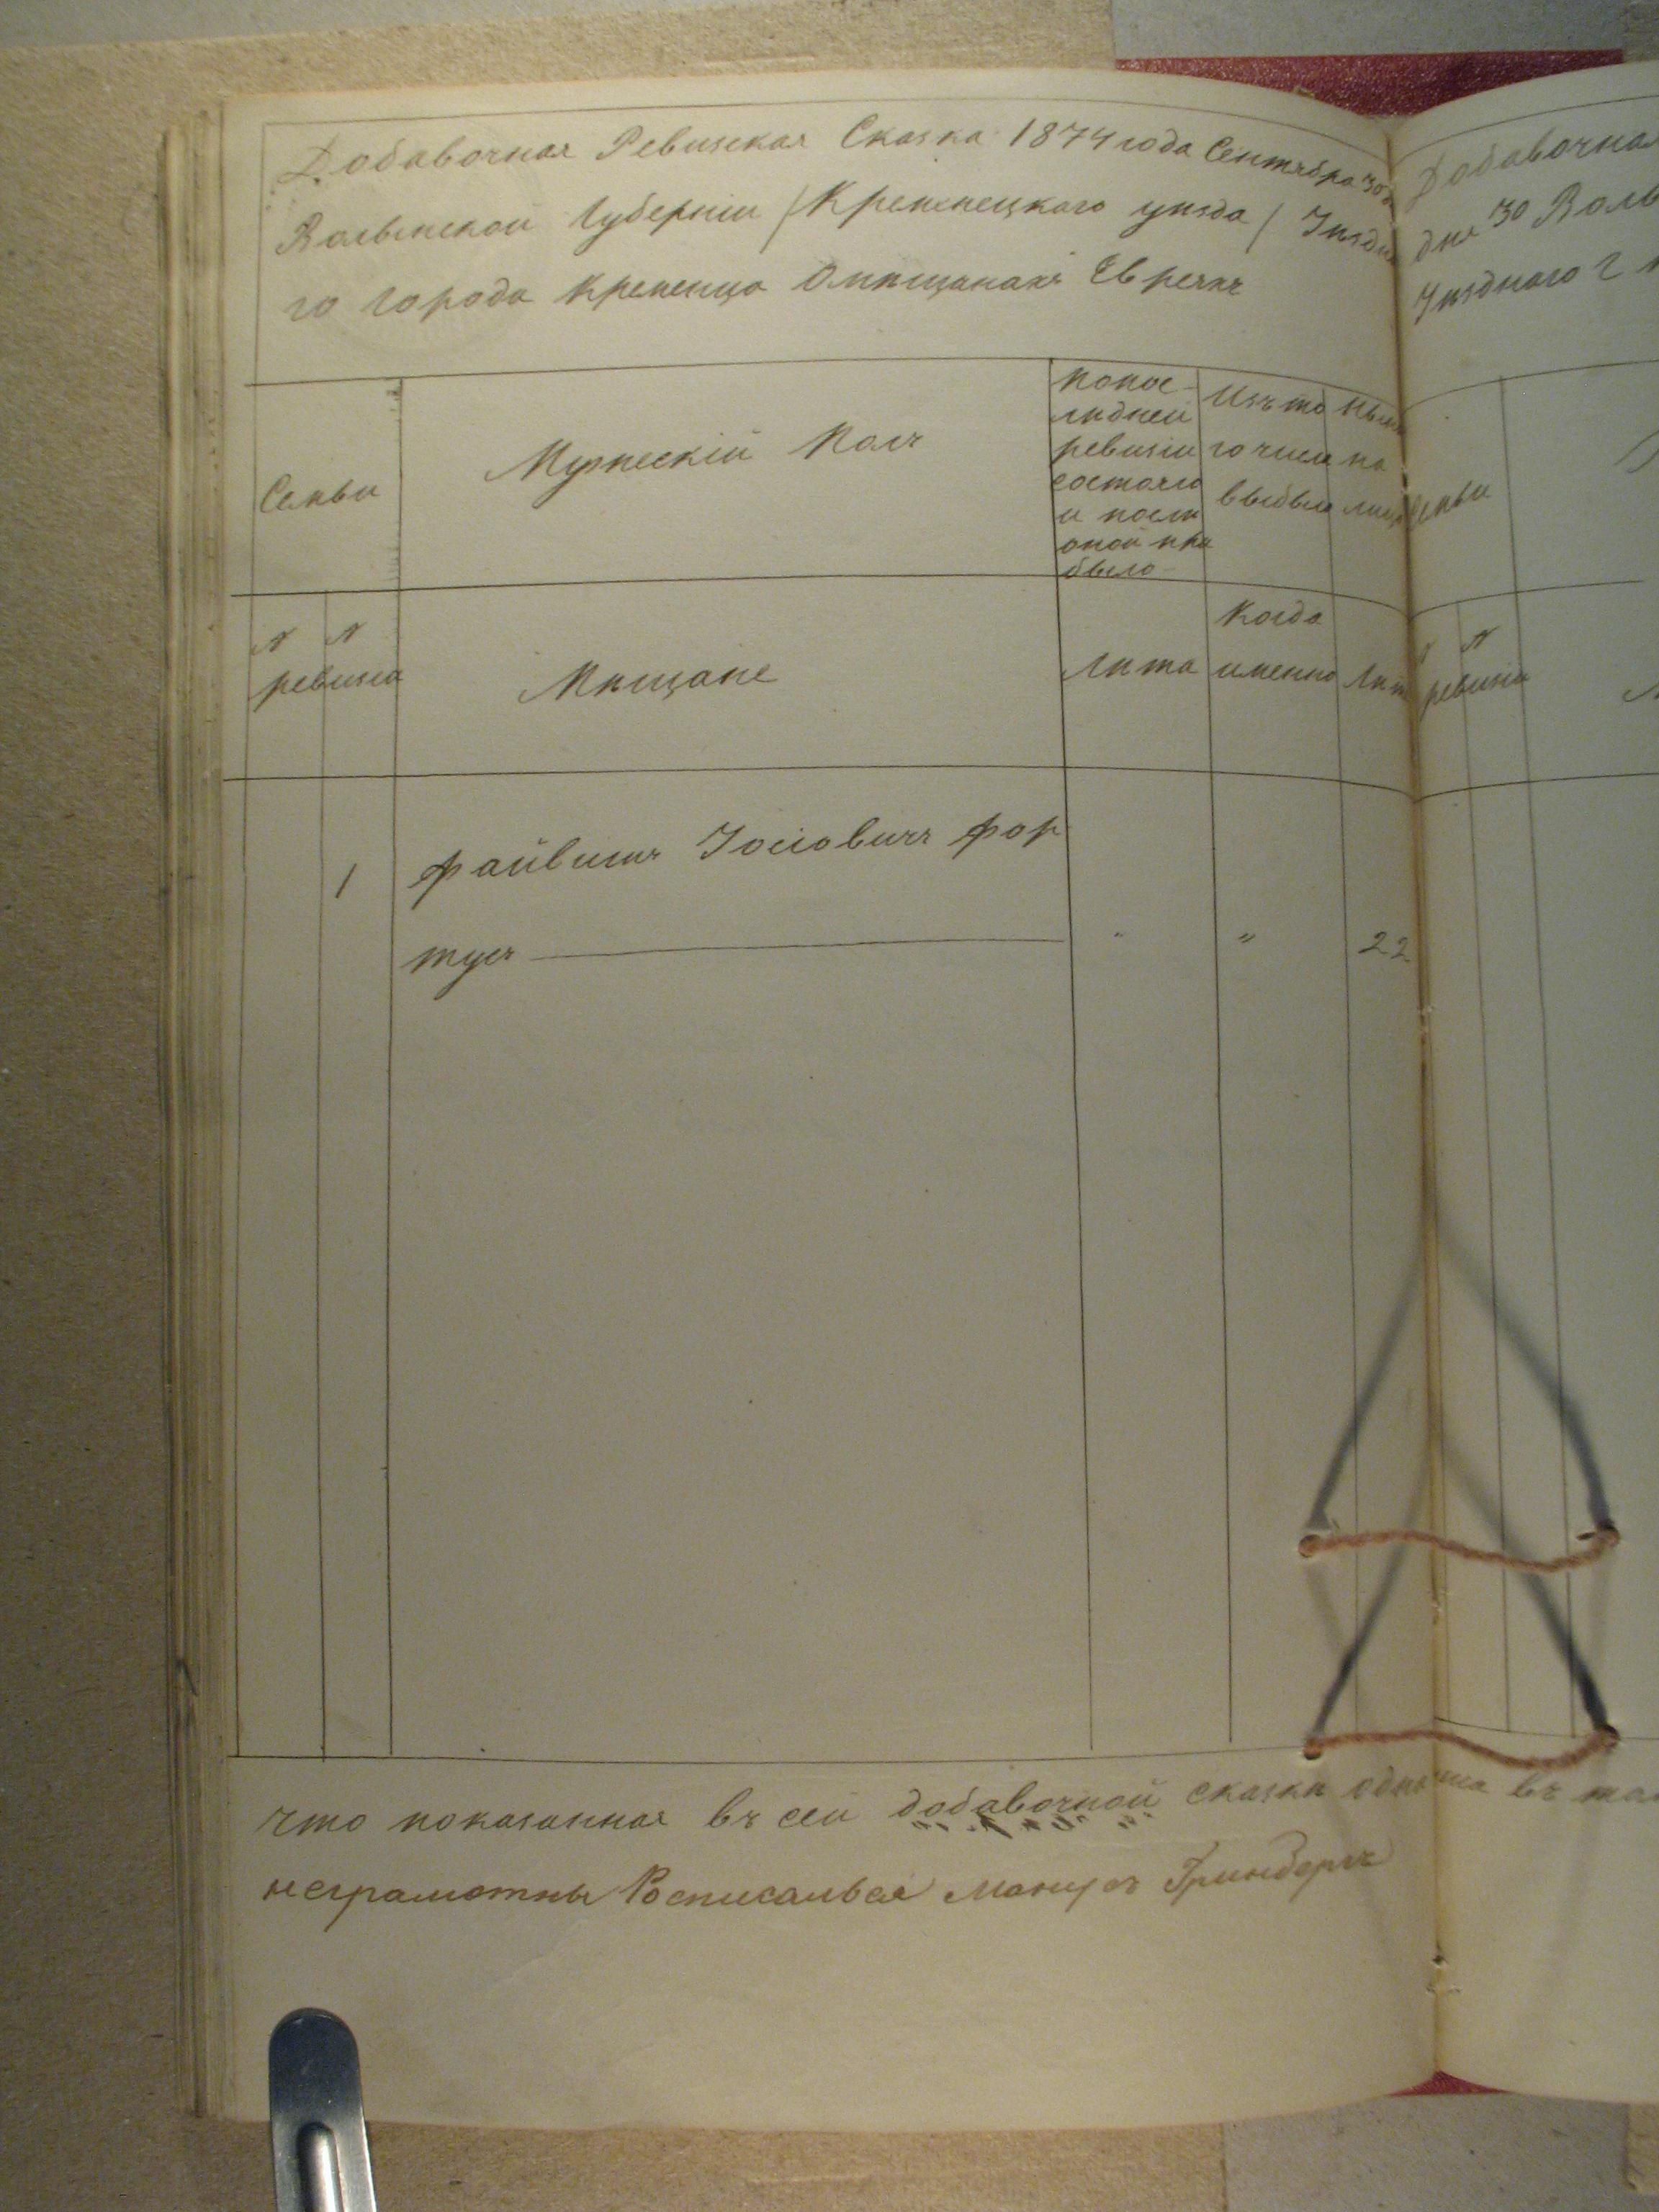 Добавочная Ревизская Сказка 1874 года Сентября 30 д
Волынской Губерніи /Кременецкаго уѣзда/ Уѣздна
го города Кременца Омѣщанахъ Евреяхъ
Семьи
Мужескій Полъ
Попос-
лѣдней
ревизіи
состояло
и послѣ
оной при
было
Изъ то
го числа
выбыло
Нынѣ
на
лицо
N N
ревизіи
Мѣщане
Лѣта
Когда
именно
Лѣт
1 Файвишъ Іосіовичъ Фор
тусъ — " " 22
Что показанная въ сей добавочной сказкѣ въ
неграмотны Росписалься Манусъ Гринбергъ
Добавочная
дня 30 Волы
Уѣзднаго г
Семьи
N N
ревизіи